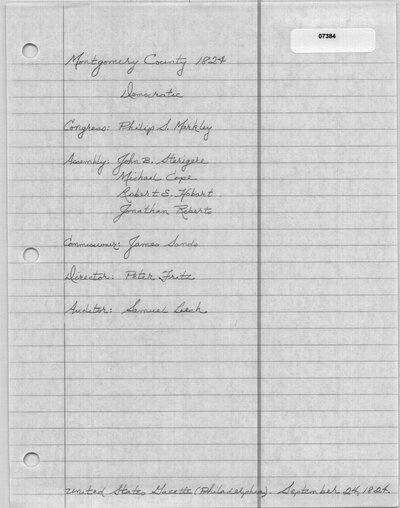 07384
Montgomery County 1824
Democratic
Congress: Philip S. Markley
Assembly: John B. Sterigere
Michael Cope
Robert E. Hobart
Jonathan Roberts
Commissioner: James Sands
Director: Peter Fritz
Auditor: Samuel Leech
United States Gazette (Philadelphia). September 24, 1824.